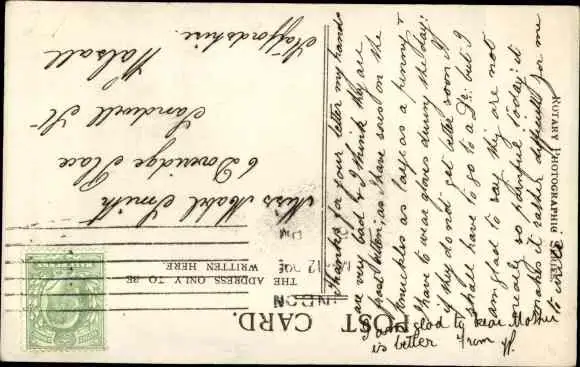 POST CARD.
THE ADDRESS ONLY TO BE
WRITTEN HERE.
Miss Mabel Smith
6 Doveridge Place
Sandwell St
Walsall
Staffordshire.
Thanks for your letter my hands
are very bad & I think they are
frost bitten as I have sores on the
knuckles as large as a penny &
have to wear gloves during the day:
if they do not get better soon I
shall have to go to a Dr: but I
am glad to say they are not
nearly so painful today: it
makes it rather difficult for me
to write.
I am glad to hear Mother
is better From
ROTARY PHOTOGRAPHIC